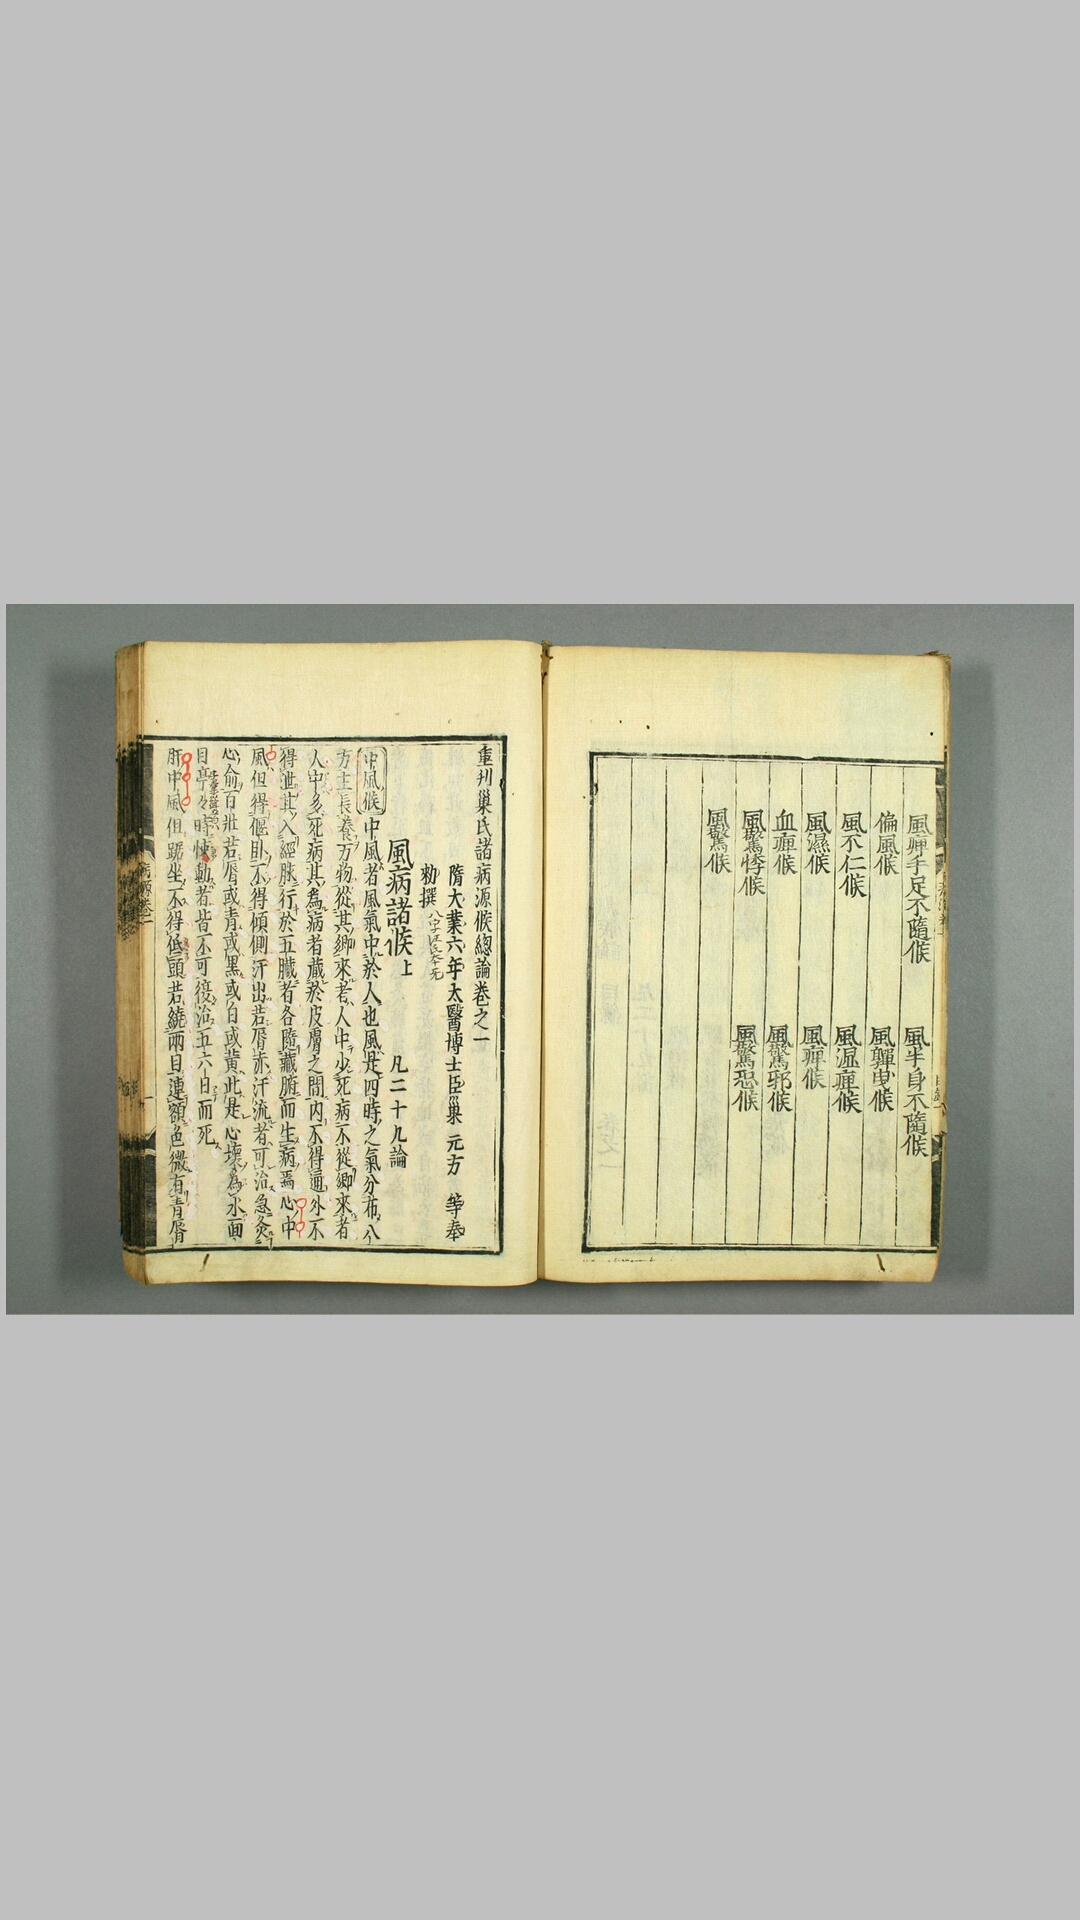 風痺手足不隨候
風半身不隨候
偏風候
風嚲曳候
風不仁候
風濕痺候
風濕候
風痺候
血痺候
風驚邪候
風驚悸候
風驚恐候
風驚候
重刊巢氏諸病源候總論卷之一
隋大業六年太醫博士臣巢元方等奉
勑撰
風病諸候上 凡二十九論
中風候中風者風氣中於人也風是四時之氣分布八
方主長養万物從其鄉來者人中少死病不從鄉來者
人中多死病其為病者藏於皮膚之間內不得通外不
得泄其入經脉行於五臟者各隨藏腑而生病焉心中
風但得偃臥不得傾側汗出若脣赤汗流者可治急灸
心俞百壯若脣或青或黑或白或黃此是心壞為水面
目亭々時悚動者皆不可復治五六日而死
肝中風但踞坐不得低頭若繞兩目連額色微有青脣
病源卷一